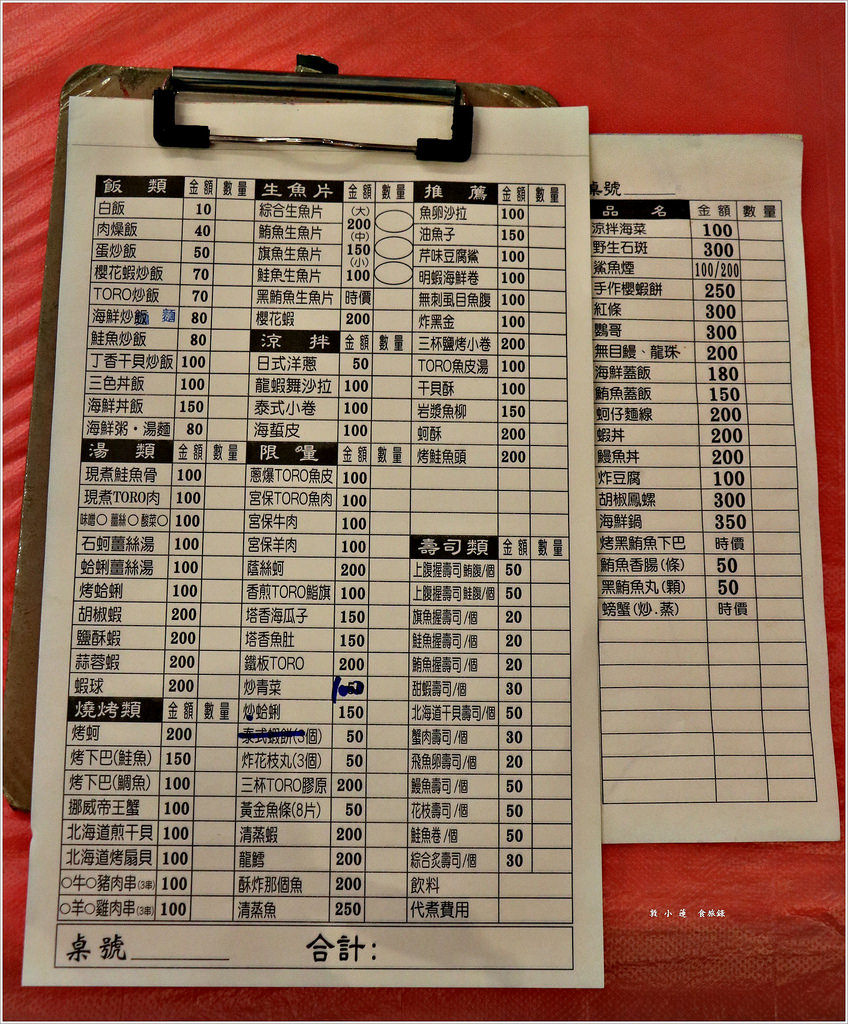 飯 類 金額 數量
白飯 10
肉燥飯 40
蛋炒飯 50
櫻花蝦炒飯 70
TORO炒飯 70
海鮮炒飯 麵 80
鮭魚炒飯 80
丁香干貝炒飯 100
三色丼飯 100
海鮮丼飯 150
海鮮粥・湯麵 80
湯 類 金額 數量
現煮鮭魚骨 100
現煮TORO肉 100
味噌○ 薑絲○ 酸菜○ 100
石蚵薑絲湯 100
蛤蜊薑絲湯 100
烤蛤蜊 100
胡椒蝦 200
鹽酥蝦 200
蒜蓉蝦 200
蝦球 200
燒烤類 金額 數量
烤蚵 200
烤下巴(鮭魚) 150
烤下巴(鯛魚) 100
挪威帝王蟹 100
北海道煎干貝 100
北海道烤扇貝 100
○牛○豬肉串(3串) 100
○羊○雞肉串(3串) 100
生魚片 金額 數量
綜合生魚片 (大)
鮪魚生魚片 200 (中)
旗魚生魚片 150 (小)
鮭魚生魚片 100
黑鮪魚生魚片 時價
櫻花蝦 200
涼 拌 金額 數量
日式洋蔥 50
龍蝦舞沙拉 100
泰式小卷 100
海蜇皮 100
限 嚐 金額 數量
蔥爆TORO魚皮 100
宮保TORO魚肉 100
宮保牛肉 100
宮保羊肉 100
蔭絲蚵 200
香煎TORO鮨旗 100
塔香海瓜子 150
塔香魚肚 150
鐵板TORO 200
炒青菜 100
炒蛤蜊 150
泰式蝦餅(3個) 50
炸花枝丸(3個) 50
三杯TORO膠原 200
黃金魚條(8片) 50
清蒸蝦 200
龍鱈 200
酥炸那個魚 200
清蒸魚 250
推 薦 金額 數量
魚卵沙拉 100
油魚子 150
芹味豆腐鯊 100
明蝦海鮮卷 100
無刺虱目魚腹 100
炸黑金 100
三杯鹽烤小卷 200
TORO魚皮湯 100
干貝酥 100
岩漿魚柳 150
蚵酥 200
烤鮭魚頭 200
壽司類 金額 數量
上腹握壽司鮪腹/個 50
上腹握壽司鮭腹/個 50
旗魚握壽司/個 20
鮭魚握壽司/個 20
鮪魚握壽司/個 20
甜蝦壽司/個 30
北海道干貝壽司/個 50
蟹肉壽司/個 30
飛魚卵壽司/個 20
鰻魚壽司/個 50
花枝壽司/個 50
鮭魚卷/個 50
綜合炙壽司/個 30
飲料
代煮費用
桌號 合計:
桌號
品 名 金額 數量
涼拌海菜 100
野生石斑 300
鯊魚煙 100/200
手作櫻蝦餅 250
紅條 300
鸚哥 300
無目鰻、龍珠 200
海鮮蓋飯 180
鮪魚蓋飯 150
蚵仔麵線 200
蝦丼 200
鰻魚丼 200
炸豆腐 100
胡椒鳳螺 300
海鮮鍋 350
烤黑鮪魚下巴 時價
鮪魚香腸(條) 50
黑鮪魚丸(顆) 50
螃蟹(炒.蒸) 時價
敦小蓮 食旅錄